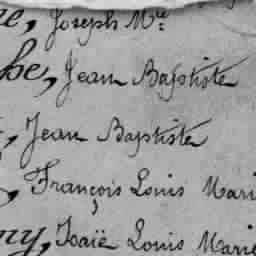 e, Joseph M.ie
be, Jean Baptiste
, Jean Baptiste
, François Louis Mari
ny, Isaïe Louis Marie